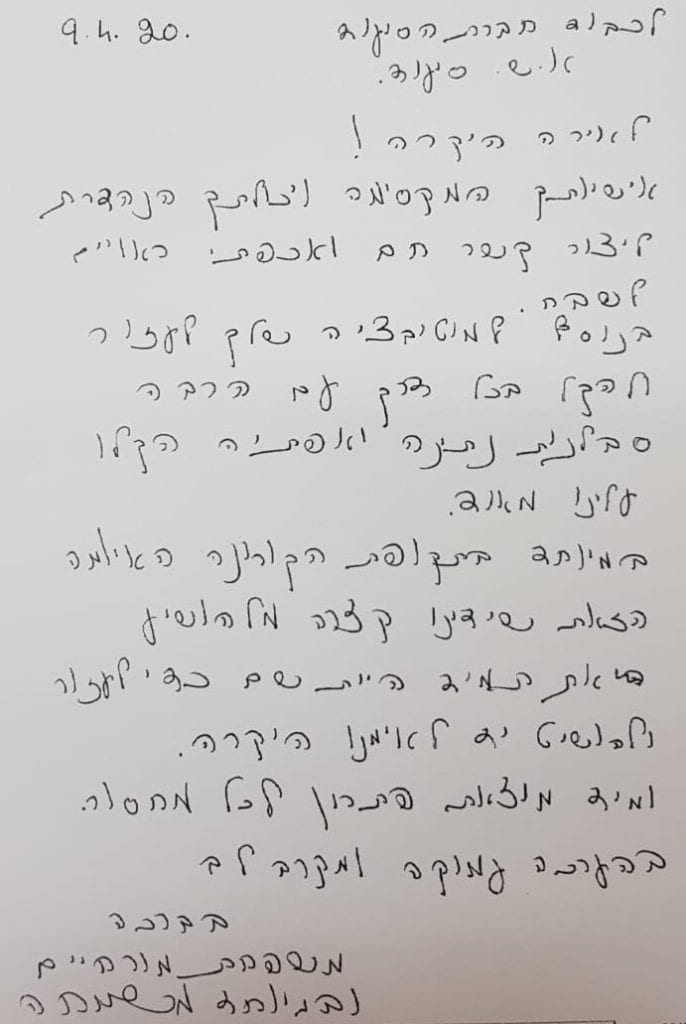 9.4.20. לכבוד חברת הסיעוד
א.ש. סיעוד.
לאירה היקרה!
אישיותך המקסימה ויכולתך הנהדרת
ליצור קשר חם ואכפתי ראויים
לשבח.
בנוסף למוטיבציה שלך לעזור
להקל בכל דרך עם הרבה
סבלנות נתינה ואפתיה הקלו
עלינו מאוד.
במיוחד בתקופת הקורונה האיומה
הזאת שידינו קצרה מלהושיע
את תמיד היית שם כדי לעזור
ולהושיט יד לאימנו היקרה.
ומיד מוצאת פתרון לכל מחסור.
בהערכה עמוקה ומקרב לב
בברכה
משפחת מורחיים
ובמיוחד